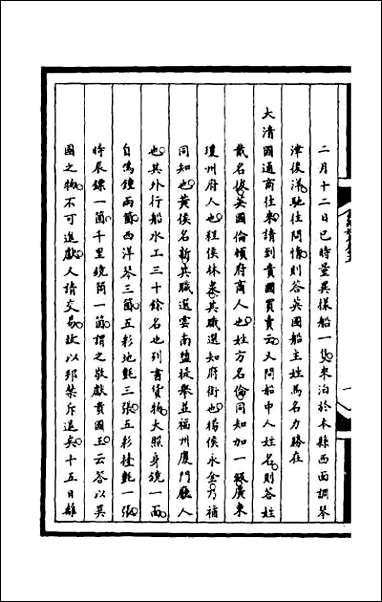 二月十二日巳時量異樣船一隻來泊於本縣西面調琴
津後洋馳往問情則答英國船主姓馬名力勝在
大清國通商往來請到貴國買賣云又問船中人姓名則答姓
戴名拔英國倫頓府商人也姓方名倫同知加一級廣東
瓊州府人也程俟林泉其職選知府銜也楊俟永金乃補
同知也黃俟名新其職選雲南鹽提舉並福州廈門廳人
也其外行船水工三十餘名也列書貨物大照身鏡一面
自鳴鐘兩箇西洋琴三箇五彩地氈三張五彩挂氈一張
時辰鏢一箇千里鏡筒一箇謂之敬獻貴國王云答以異
國之物不可進獻人請交易故以邦禁斥退矣十五日離